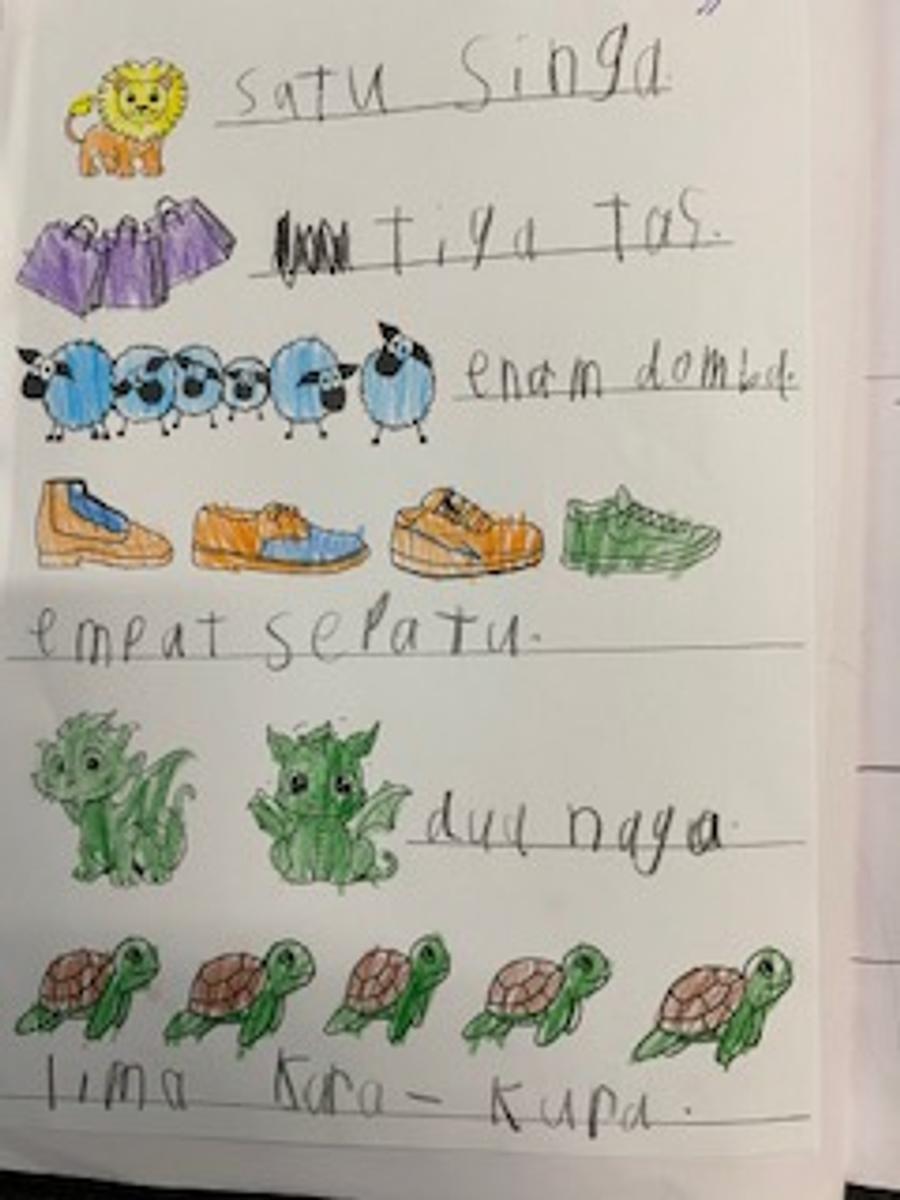 satu singa
tiga tas.
enam domba.
empat sepatu.
dua naga.
lima kura-kupa.